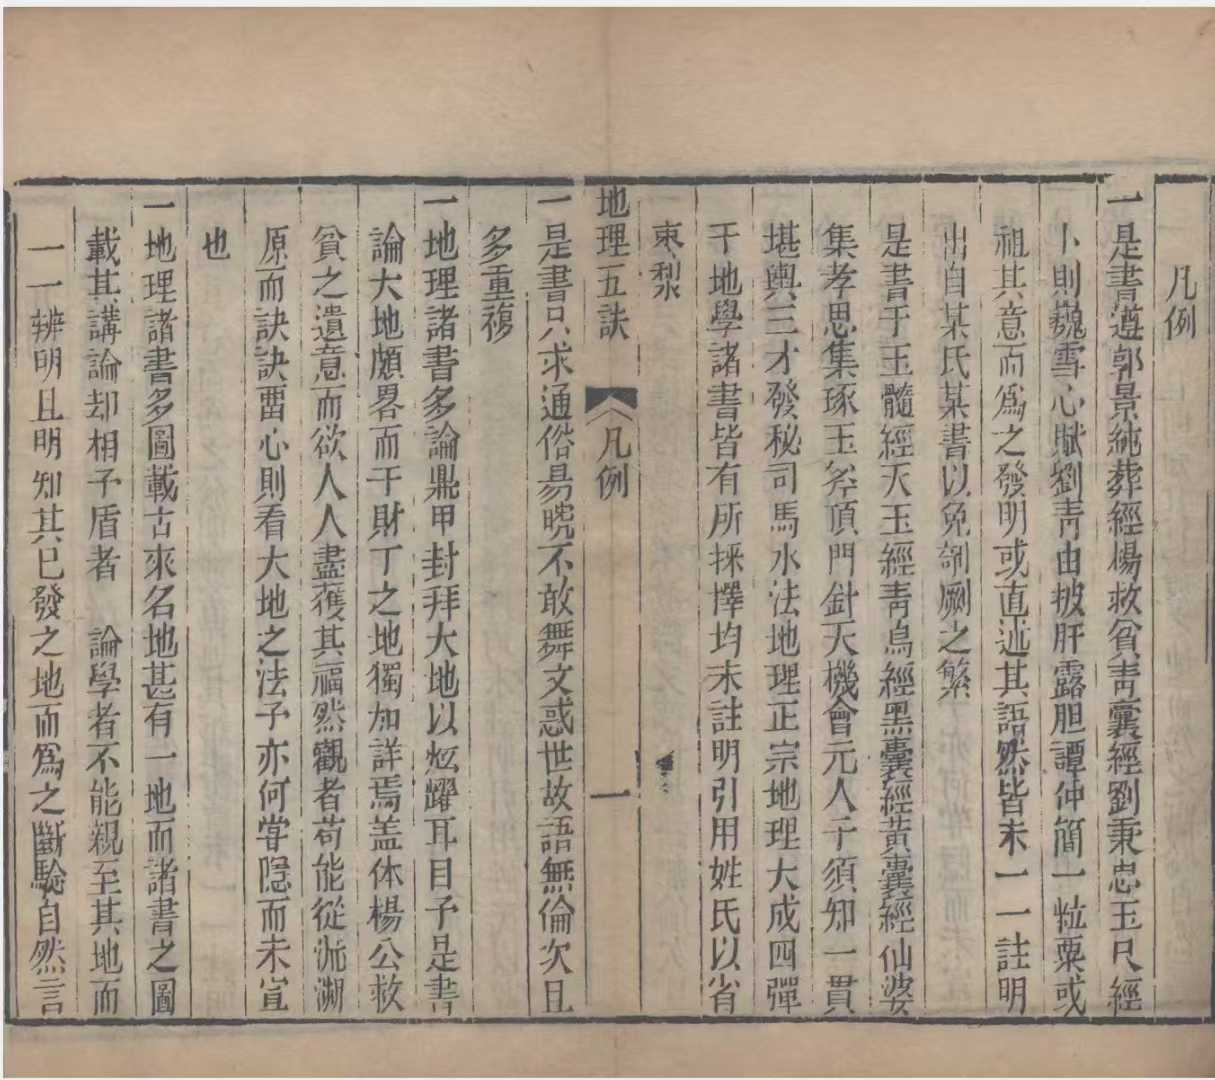 凡例
一是書遵郭景純葬經楊救貧靑囊經劉秉忠玉尺經
卜則巍雪心賦劉靑由披肝露胆譚仲簡一粒粟或
祖其意而爲之發明或直述其語然皆未一一註明
出自某氏某書以免剞劂之繁
是書于玉髓經天玉經靑烏經黑囊經黃囊經仙婆
集孝思集琢玉斧頂門針天機會元人子須知一貫
堪輿三才發秘司馬水法地理正宗地理大成四彈
子地學諸書皆有所採擇均未註明引用姓氏以省
柬梨
地理五訣 凡例 一
一是書只求通俗易曉不敢舞文惑世故語無倫次且
多重複
一地理諸書多論鼎甲封拜大地以炫耀耳目予是書
論大地頗畧而于財丁之地獨加詳焉盖体楊公救
貧之遺意而欲人人盡獲其福然觀者苟能從流溯
原而訣訣畱心則看大地之法子亦何甞隱而未宣
也
一地理諸書多圖載古來名地甚有一地而諸書之圖
載其講論却相予盾者 論學者不能親至其地而
一一辨明且明知其已發之地而爲之斷驗自然言